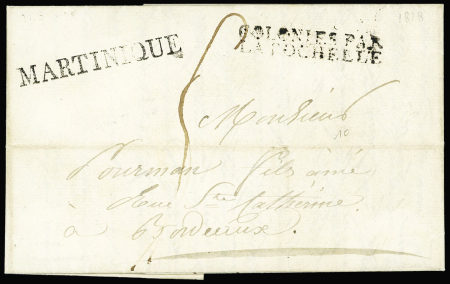 MARTINIQUE
COLONIES PAR
LA ROCHELLE
1818
5
Monsieur
10
fils aîné
Rue Ste Catherine
à Bordeaux.